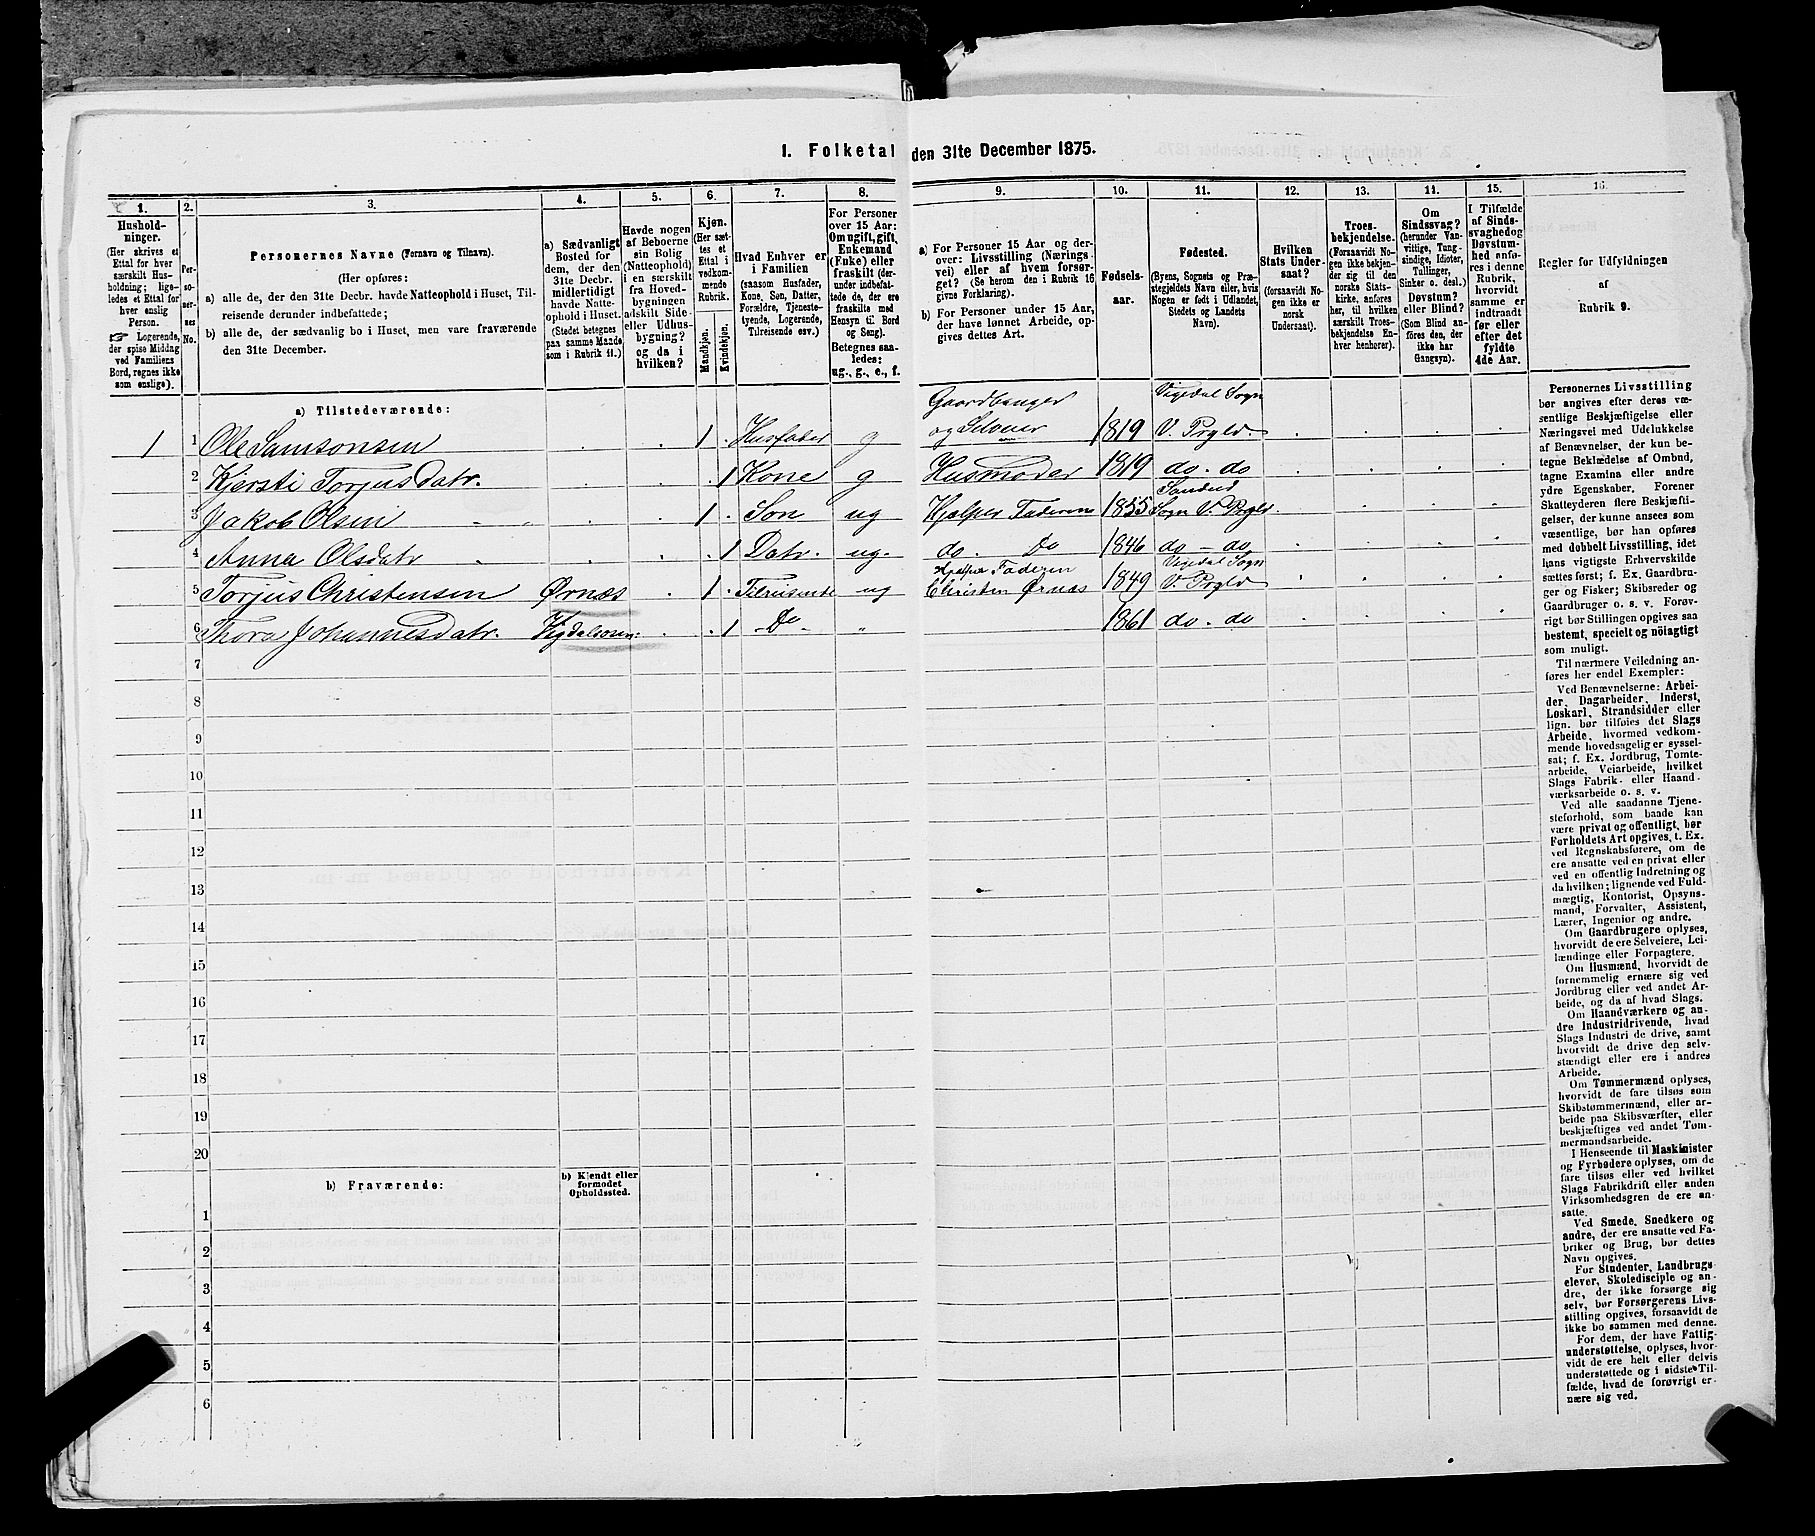 1. Folketal den 31te December 1875.
1.
2.
3.
4.
5.
6.
7.
8.
9.
10.
11.
12.
13.
14.
15.
16.
Hushold-
ninger.
(Her skrives et
Ettal for hver
særskilt Hus-
holdning; lige-
ledes et Ettal for
hver enslig
Person.
☞ Logerende,
der spise Middag
ved Familiens
Bord, regnes ikke
som enslige).
Per-
so-
ner-
nes
No.
Personernes Navne (Fornavn og Tilnavn).
(Her opføres:
a) alle de, der den 31te Decbr. havde Natteophold i Huset, Til-
reisende derunder indbefattede;
b) alle de, der sædvanlig bo i Huset, men vare fraværende
den 31te December.
a) Sædvanligt
Bosted for
dem, der den
31te Decbr.
midlertidigt
havde Natte-
ophold i Huset.
(Stedet betegnes
paa samme Maade
som i Rubrik 11.)
Havde nogen
af Beboerne
sin Bolig
(Natteophold)
i en særskilt
fra Hoved-
bygningen
adskilt Side-
eller Udhus-
bygning?
og da i
hvilken?
Kjøn.
(Her sæt-
tes et
Ettal i
vedkom-
mende
Rubrik.
Mandkjøn.
Kvindekjøn.
Hvad Enhver er
i Familien
(saasom Husfader,
Kone, Søn, Datter,
Forældre, Tjeneste-
tyende, Logerende,
Tilreisende osv.)
For Personer
over 15 Aar:
Om ugift, gift,
Enkemand
(Enke) eller
fraskilt (der-
under indbefat-
tede de, der ere
fraskilte med
Hensyn til Bord
og Seng).
Betegnes saa-
ledes:
ug., g., e., f.
a) For Personer 15 Aar og der-
over: Livsstilling (Nærings-
vei) eller af hvem forsør-
get (Se herom den i Rubrik 16
givne Forklaring).
b) For Personer under 15 Aar,
der have lønnet Arbeide, op-
gives dettes Art.
Fødsels-
aar.
Fødested.
(Byens, Sognets og Præ-
stegjeldets Navn eller, hvis
Nogen er født i Udlandet,
Stedets og Landets
Navn).
Hvilken
Stats Under-
saat?
(forsaavidt No-
gen ikke er
norsk
Undersaat).
Troes-
bekjendelse.
(Forsaavidt No-
gen ikke bekjen-
der sig til den
norske Stats-
kirke, anføres
her, til hvilken
særskilt Troes-
bekjendelse En-
hver henhører).
Om
Sindssvag?
(herunder Van-
vittige, Tung-
sindige, Idioter,
Tullinger,
Sinker o. desl.)
Døvstum?
eller Blind?
(Som Blind an-
føres den, der
ikke har
Gangsyn).
I Tilfælde
af Sinds-
svaghed og
Døvstum-
hed anfø-
res i denne
Rubrik,
hvorvidt
samme er
indtraadt
før eller
efter det
fyldte
4de Aar.
Regler for Udfyldningen
af
Rubrik 9.
a) Tilstedeværende:
1 1 Ole Samsonsen 1 Husfader g Gaardbruger og Selveier 1819 Vigedal Sogn V. Prgld.
2 Kjersti Torjusdatr. 1 Kone g Husmoder 1819 do. do
3 Jakob Olsen 1 Søn ug Hjælper Faderen 1855 Sandeid Sogn V. Prgld.
4 Anna Olsdatr 1 Datr. ug. do. Do 1846 do - do
5 Torjus Christensen Ørnæs 1 Tilreisende ug Hjælper Faderen Christen Ørnæs 1849 Vigedal Sogn V. Prgld
6 Thora Johannesdatr. Vigdalsosen 1 - Do - " 1861 do. do
7
8
9
10
11
12
13
14
15
16
17
18
19
20
b) Fraværende:
b) Kjendt eller
formodet
Opholdssted.
1
2
3
4
5
6
Personernes Livsstilling
bør angives efter deres væ-
sentlige Beskjæftigelse eller
Næringsvei med Udelukkelse
af Benævnelser, der kun be-
tegne Beklædelse af Ombud,
tagne Examina eller andre
ydre Egenskaber. Forener
Skatteyderen flere Beskjæfti-
gelser, der kunne ansees som
væsentlige, bør han opføres
med dobbelt Livsstilling, idet
hans vigtigste Erhvervskilde
sættes først; f. Ex. Gaardbru-
ger og Fisker; Skibsreder og
Gaardbruger o. s. v. Forøv-
rigt bør Stillingen opgives saa
bestemt, specielt og nöiagtigt
som muligt.
Til nærmere Veiledning an-
føres her endel Exempler:
Ved Benævnelserne: Arbei-
der, Dagarbeider, Inderst,
Løskarl, Strandsidder eller
lign. bør tilføies det Slags
Arbeide, hvormed vedkom-
mende hovedsagelig er syssel-
sat; f. Ex. Jordbrug, Tomte-
arbeide, Veiarbeide, hvilket
Slags Fabrik- eller Haand-
værksarbeide o. s. v.
Ved alle saadanne Tjene-
steforhold, som baade kan
være privat og offentligt, bør
Forholdets Art opgives, t. Ex.
ved Regnskabsførere, om de
ere ansatte ved en privat eller
ved en offentlig Indretning og
da hvilken; lignende ved Fuld-
mægtig, Kontorist, Opsyns-
mand, Forvalter, Assistent,
Lærer, Ingeniør og andre.
Om Gaardbrugere oplyses,
hvorvidt de ere Selveiere, Lei-
lændinge eller Forpagtere.
Om Husmænd, hvorvidt de
fornemmelig ernære sig ved
Jordbrug eller ved andet Ar-
beide, og da af hvad Slags.
Om Haandværkere og an-
dre Industridrivende, hvad
Slags Industri de drive, samt
hvorvidt de drive den selv-
stændigt eller ere i andres
Arbeide.
Om Tømmermænd oplyses,
hvorvidt de fare tilsøs som
Skibstømmermænd, eller ar-
beide paa Skibsværfter, eller
beskjæftiges ved andet Tøm-
mermandsarbeide.
I Henseende til Maskinister
og Fyrbødere oplyses, om de
fare tilsøs eller ved hvilket
Slags Fabrikdrift eller anden
Virksomhedsgren de ere an-
satte.
Ved Smede, Snedkere og
andre, der ere ansatte ved Fa-
briker og Brug, bør dettes
Navn opgives.
For Studenter, Landbrugs-
elever, Skoledisciple og an-
dre, der ikke forsørge sig
selv, bør Forsørgerens Livs-
stilling opgives, forsaavidt de
ikke bo sammen med denne.
For dem, der have Fattig-
understøttelse, oplyses, hvor-
vidt de ere helt eller delvis
understøttede og i sidste Til-
fælde, hvad de forøvrigt er-
nære sig ved.